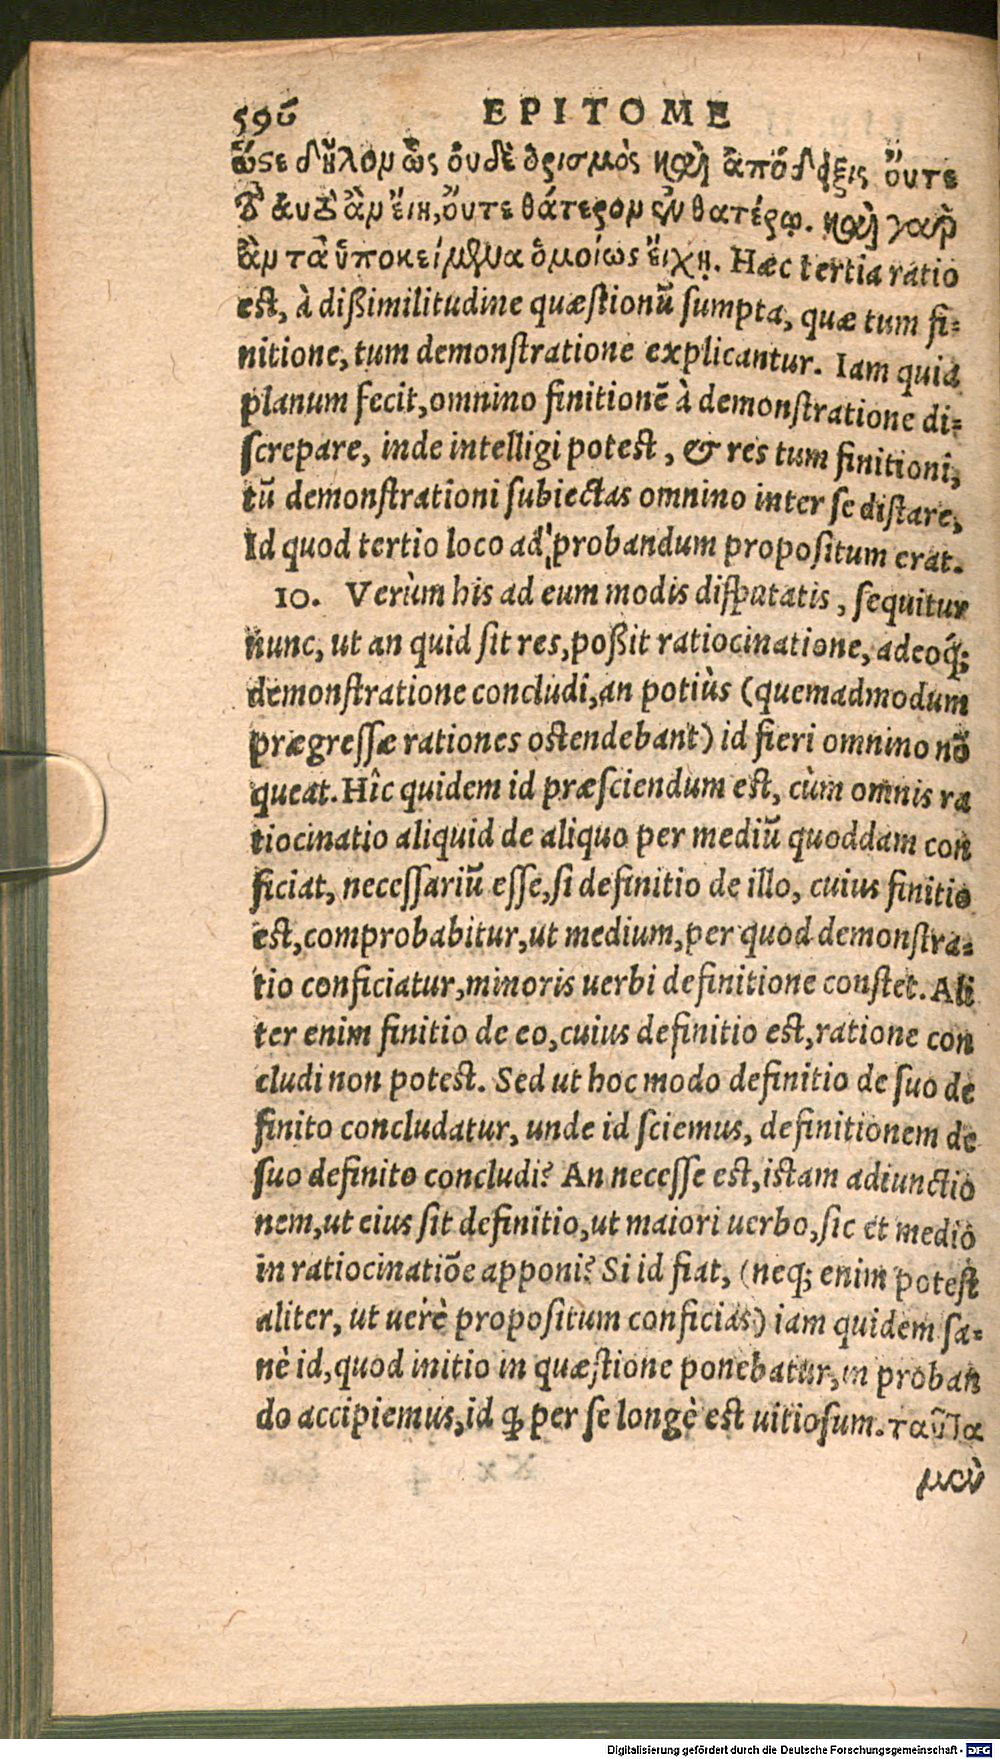 596 EPITOME
ὥστε δῆλον ὡς οὐδὲ ὁρισμὸς καὶ ἀπόδειξις οὔτε
τὸ αὐτὸ ἂν εἴη, οὔτε θάτερον ἐν θατέρῳ. καὶ γὰρ
ἂν τὰ ὑποκείμενα ὁμοίως εἴχῃ. Hæc tertia ratio
est, à dißimilitudine quæstionũ sumpta, quæ tum fi=
nitione, tum demonstratione explicantur. Iam quia
planum fecit, omnino finitionẽ à demonstratione di=
screpare, inde intelligi potest, & res tum finitioni,
tũ demonstrationi subiectas omnino inter se distare,
Id quod tertio loco ad probandum propositum erat.
10. Verùm his ad eum modis disputatis, sequitur
nunc, ut an quid sit res, poßit ratiocinatione, adeoq́;
demonstratione concludi, an potiùs (quemadmodum
prægressæ rationes ostendebant) id fieri omnino nõ
queat. Hîc quidem id præsciendum est, cùm omnis ra
tiocinatio aliquid de aliquo per mediũ quoddam con
ficiat, necessariũ esse, si definitio de illo, cuius finitio
est, comprobabitur, ut medium, per quod demonstra=
tio conficiatur, minoris uerbi definitione constet. Ali
ter enim finitio de eo, cuius definitio est, ratione con
cludi non potest. Sed ut hoc modo definitio de suo de
finito concludatur, unde id sciemus, definitionem de
suo definito concludi? An necesse est, istam adiunctio
nem, ut eius sit definitio, ut maiori uerbo, sic et medio
in ratiocinatiõe apponi? Si id fiat, (neq; enim potest
aliter, ut uerè propositum conficias) iam quidem sa=
nè id, quod initio in quæstione ponebatur, in proban
do accipiemus, id ꝙ per se longè est uitiosum. ταῦτα
μὲν